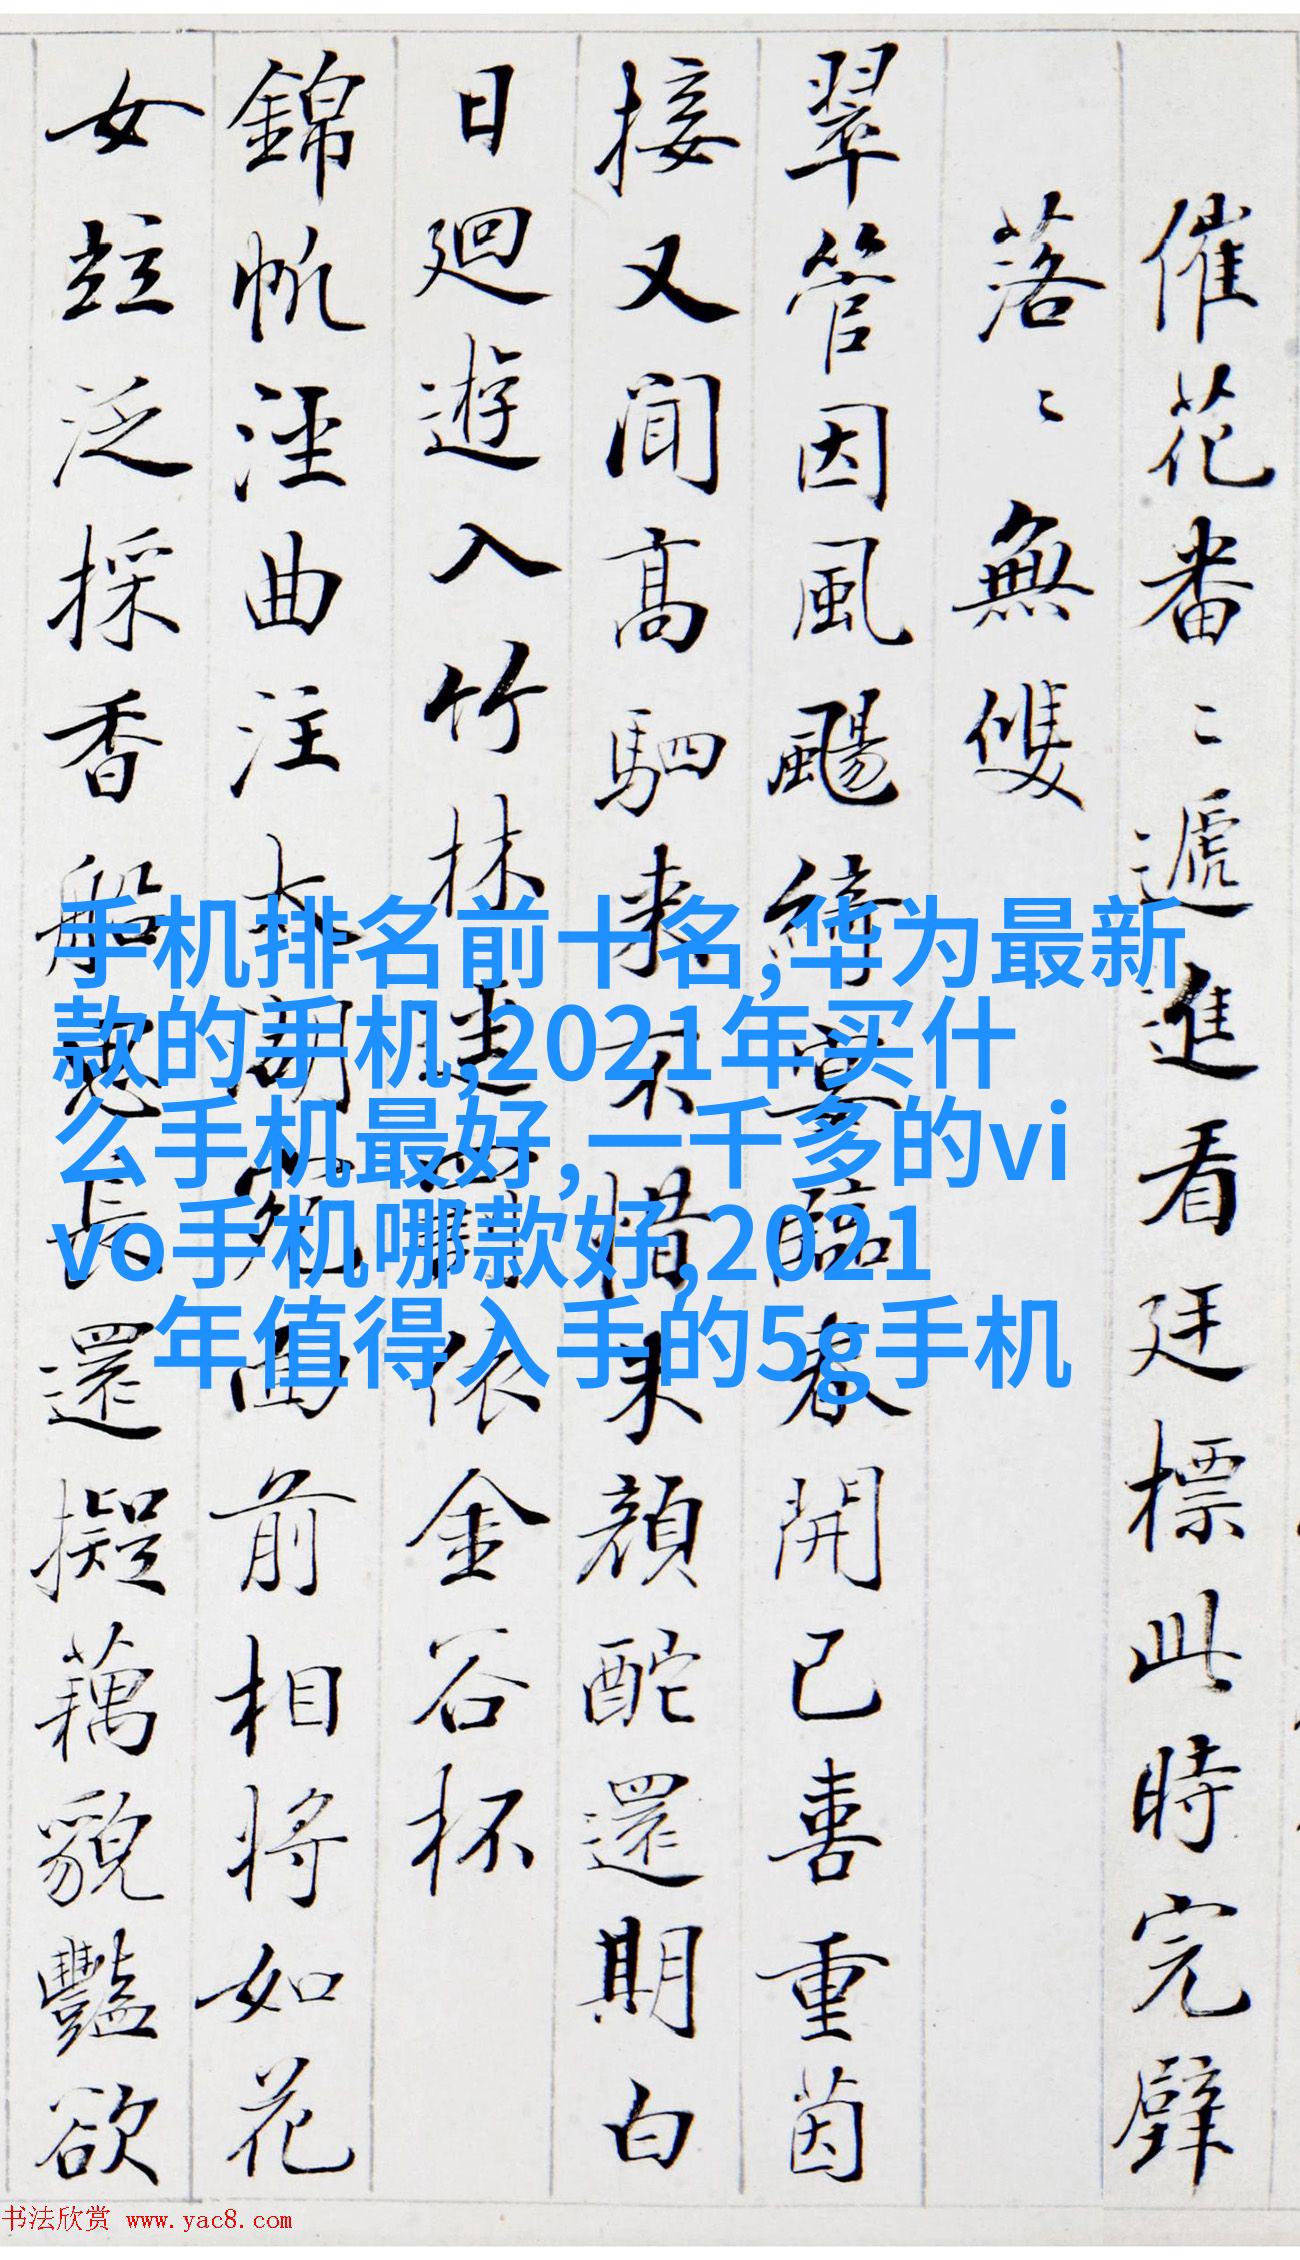 催花番〻遞進看廷標此時完璧
落〻無雙
翠管因風颺綺宴臨春開已喜重茵
接又聞高駟來不惜朱顔酡還期白
日廻遊入竹林依金谷杯
錦帆涇曲注太湖前相将如花
女竝泛採香船長還擬藕貌豔欲
手机排名前十名,华为最新
款的手机,2021年买什
么手机最好,一千多的vi
vo手机哪款好,2021
年值得入手的5g手机
书法欣赏 www.yac8.com